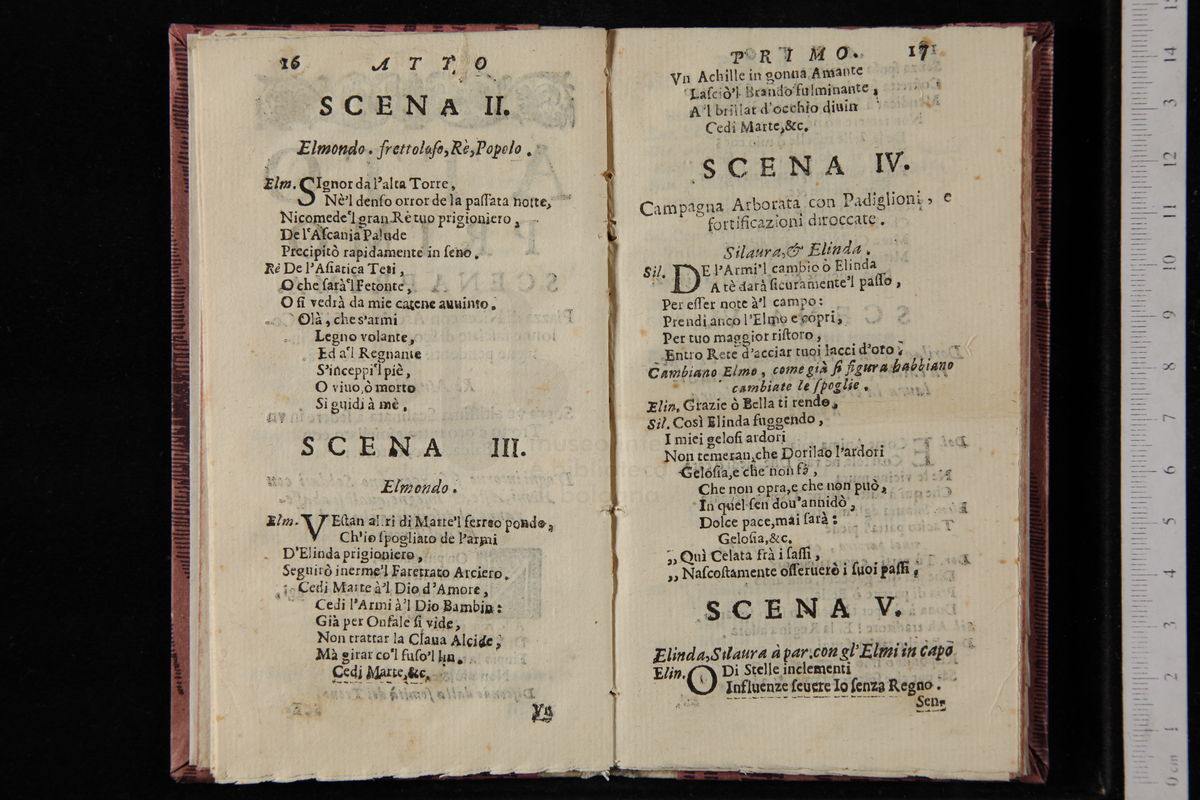 16 ATTO
SCENA II.
Elmondo. frettoloso, Rè, Popolo.
Elm. SIgnor da l'alta Torre,
Nè'l denso orror de la passata notte,
Nicomede'l gran Rè tuo prigioniero,
De l'Ascania Palude
Precipitò rapidamente in seno.
Rè De l'Asiatica Teti,
O che sarà'l Fetonte,
O si vedrà da mie catene auuinto.
Olà, che s'armi
Legno volante,
Ed a'l Regnante
S'inceppi'l piè,
O viuo, ò morto
Si guidi à mè.
SCENA III.
Elmondo.
Elm. VEstan altri di Marte'l ferreo pondo,
Ch'io spogliato de l'armi
D'Elinda prigioniero,
Seguirò inerme'l Faretrato Arciero.
Cedi Marte à'l Dio d'Amore,
Cedi l'Armi à'l Dio Bambin:
Già per Onfale si vide,
Non trattar la Claua Alcide;
Mà girar co'l fuso'l lin.
Cedi Marte,&c.
Vn
PRIMO. 17
Vn Achille in gonna Amante
Lasciò'l Brando fulminante,
A'l brillar d'occhio diuin
Cedi Marte,&c.
SCENA IV.
Campagna Arborata con Padiglioni, e
fortificazioni diroccate.
Silaura,& Elinda.
Sil. DE l'Armi'l cambio ò Elinda
A tè darà sicuramente'l passo,
Per esser note à'l campo:
Prendi anco l'Elmo e copri,
Per tuo maggior ristoro,
Entro Rete d'acciar tuoi lacci d'oro.
Cambiano Elmo, come già si figura habbiano
cambiate le spoglie.
Elin. Grazie ò Bella ti rendo.
Sil. Così Elinda fuggendo,
I miei gelosi ardori
Non temeran, che Dorilao l'ardori
Gelosia, e che non fà,
Che non opra, e che non può,
In quel sen dou'annidò,
Dolce pace, mai sarà:
Gelosia,&c.
,, Quì Celata frà i sassi,
,, Nascostamente osseruerò i suoi passi.
SCENA V.
Elinda, Silaura à par. con gl'Elmi in capo
Elin. ODi Stelle inclementi
Influenze seuere Io senza Regno.
Sen-